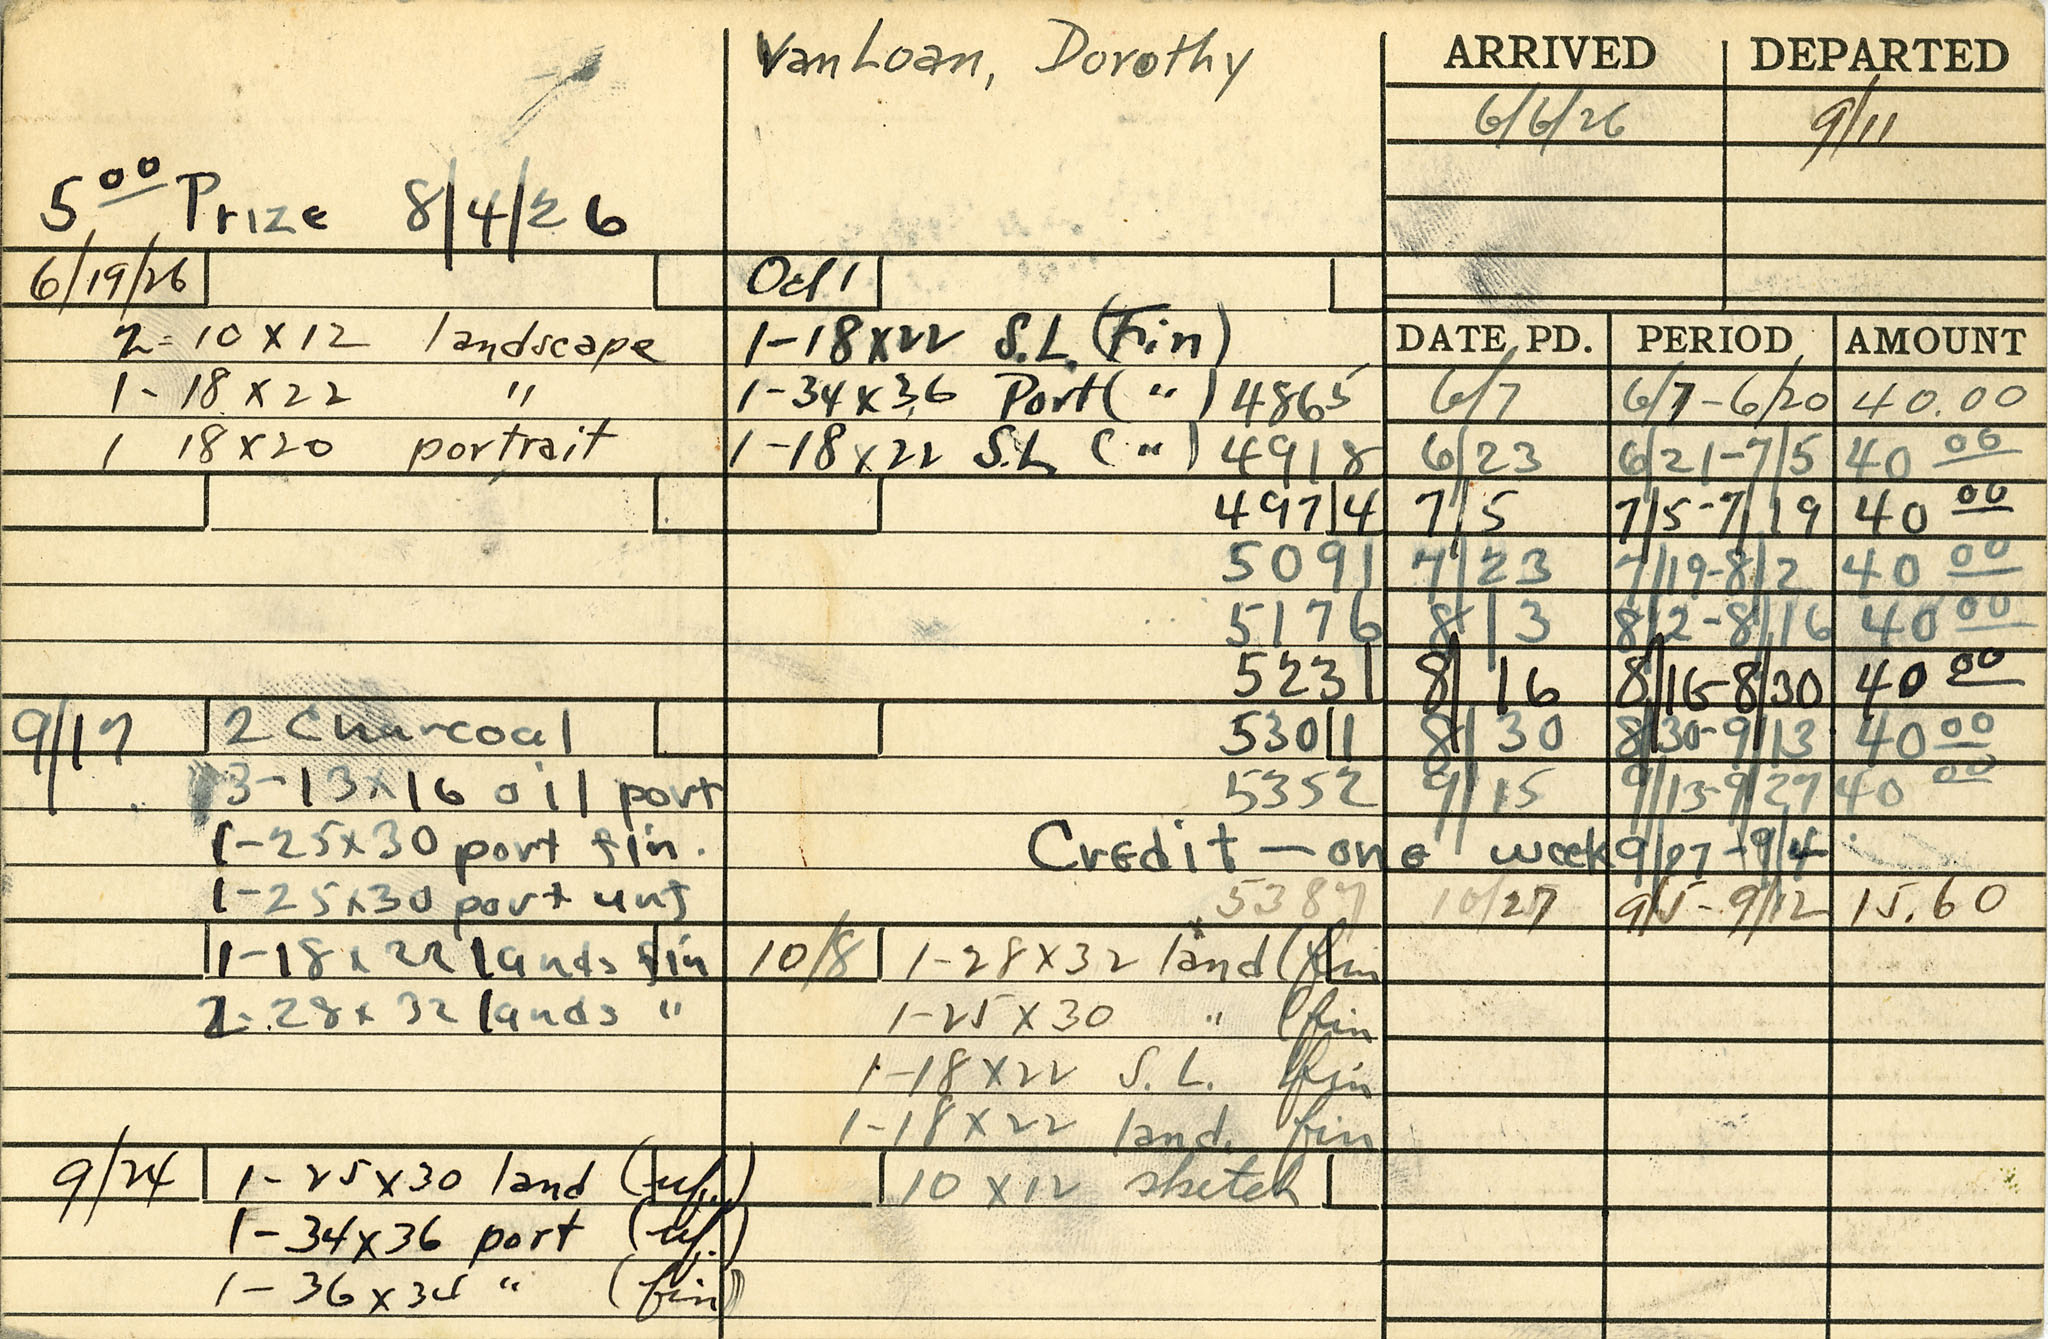 VanLoan, Dorothy
ARRIVED DEPARTED
6/6/26 9/11
5.00 Prize 8/4/26
6/19/26
2-10x12 landscape
1-18x22 "
1 18x20 portrait
9/17 2 Charcoal
3-13x16 oil port
1-25x30 port fin.
1-25x30 port unf
1-18x22 lands fin
2-28x32 lands "
9/24 1-25x30 land (unf.)
1-34x36 port (uf.)
1-36x34 " (fin)
Oct 1
1-18x22 S.L. (Fin)
1-34x36 Port ( " )
1-18x22 S.L. ( " )
10/8 1-28x32 land (fin
1-25x30 " (fin
1-18x22 S.L. fin
1-18x22 land. fin
10x12 sketch
DATE PD. PERIOD AMOUNT
4865 6/7 6/7-6/20 40.00
4918 6/23 6/21-7/5 40 00
4974 7/5 7/5-7/19 40 00
5091 7/23 7/19-8/2 40 00
5176 8/3 8/2-8/16 40 00
5231 8/16 8/16-8/30 40 00
5301 8/30 8/30-9/13 40 00
5352 9/15 9/13-9/27 40 00
Credit-one week 9/27-9/4
5387 10/27 9/5-9/12 15.60